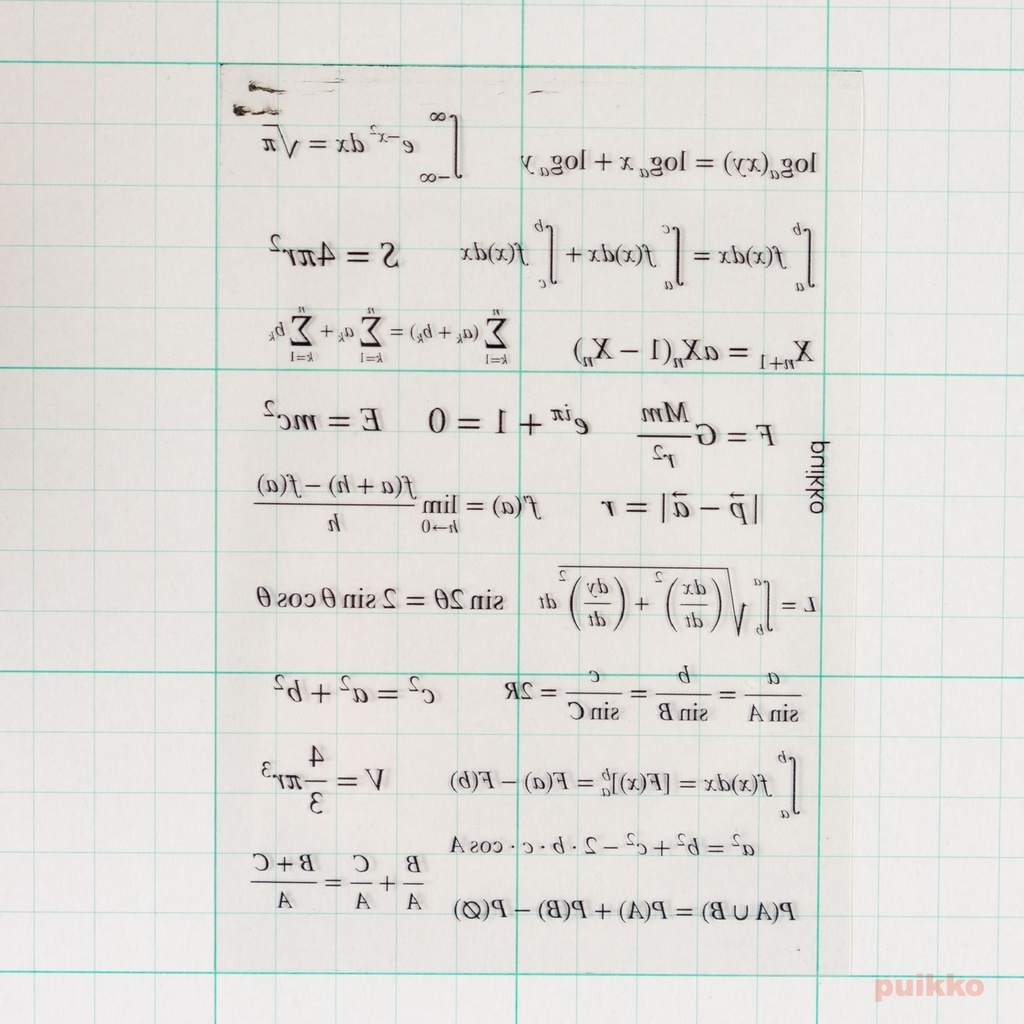 logₐ(xy) = logₐ x + logₐ y
∫_{-∞}^{∞} e^{-x²} dx = √π
∫_a^b f(x)dx = ∫_a^c f(x)dx + ∫_c^b f(x)dx
S = 4πr²
X_{n+1} = aX_n(1 − X_n)
∑_{k=1}^{n} (a_k + b_k) = ∑_{k=1}^{n} a_k + ∑_{k=1}^{n} b_k
F = G Mm/r²
e^{iπ} + 1 = 0
E = mc²
puikko
|p⃗ − a⃗| = r
f'(a) = lim_{h→0} (f(a + h) − f(a))/h
L = ∫_b^a √((dx/dt)² + (dy/dt)²) dt
sin 2θ = 2 sin θ cos θ
a/sin A = b/sin B = c/sin C = 2R
c² = a² + b²
∫_a^b f(x)dx = [F(x)]_a^b = F(a) − F(b)
V = 4/3 πr³
a² = b² + c² − 2 · b · c · cos A
B/A + C/A = (B + C)/A
P(A ∪ B) = P(A) + P(B) − P(∅)
puikko